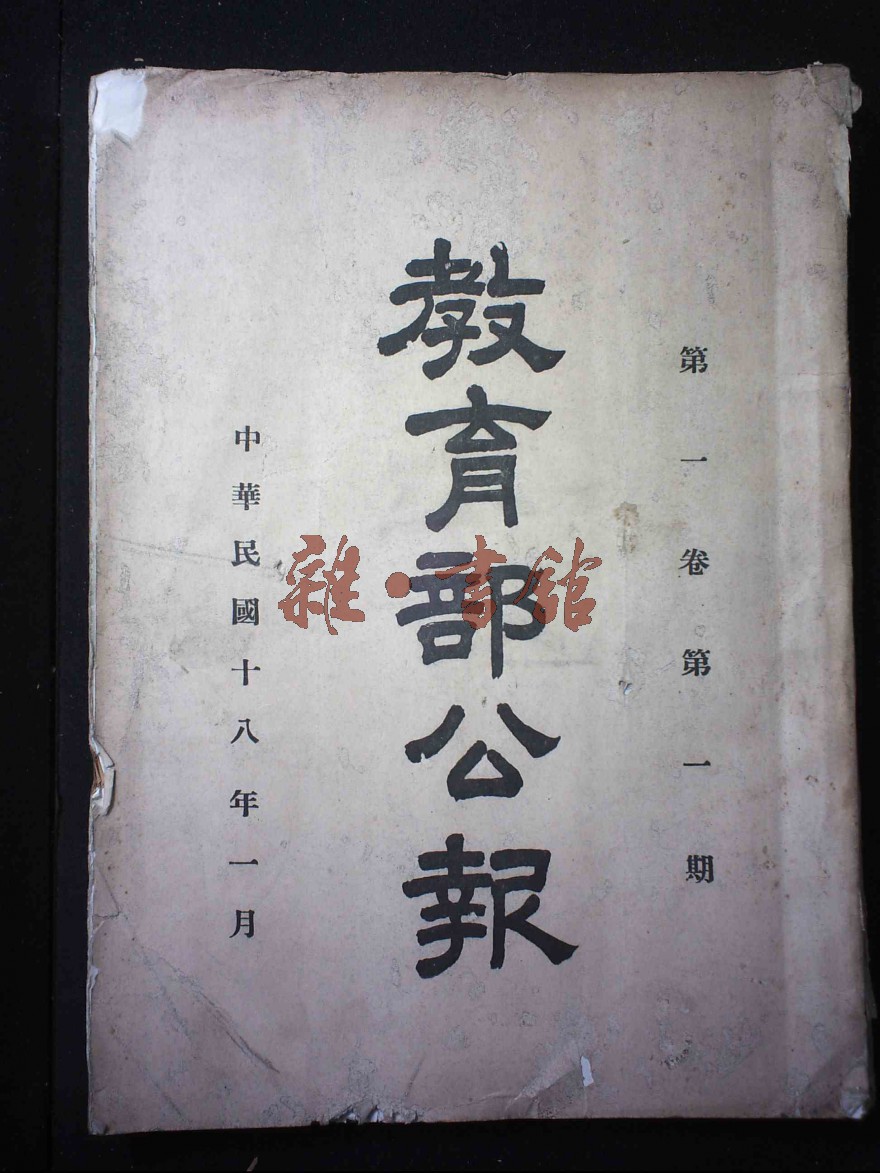 第一卷第一期
教育部公報
中華民國十八年一月
雜·書館